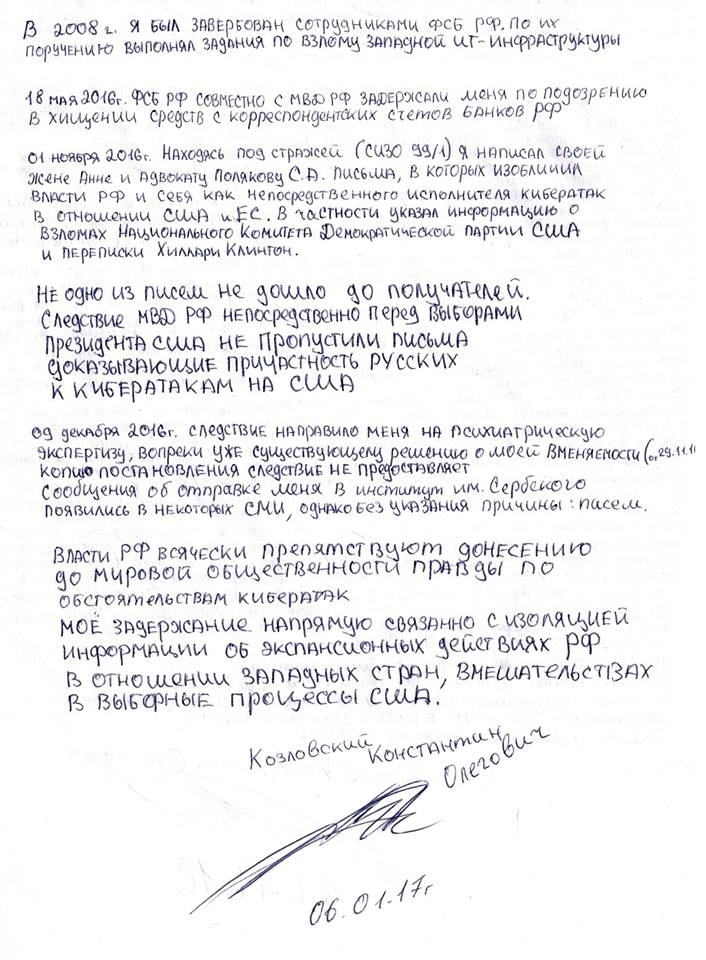 В 2008 г. Я БЫЛ ЗАВЕРБОВАН СОТРУДНИКАМИ ФСБ РФ. ПО ИХ
ПОРУЧЕНИЮ ВЫПОЛНЯЛ ЗАДАНИЯ ПО ВЗЛОМУ ЗАПАДНОЙ ИТ-ИНФРАСТРУКТУРЫ
18 МАЯ 2016г. ФСБ РФ СОВМЕСТНО С МВД РФ ЗАДЕРЖАЛИ МЕНЯ ПО ПОДОЗРЕНИЮ
В ХИЩЕНИИ СРЕДСТВ С КОРРЕСПОНДЕНТСКИХ СЧЕТОВ БАНКОВ РФ
01 НОЯБРЯ 2016г. НАХОДЯСЬ ПОД СТРАЖЕЙ (СИЗО 99/1) Я НАПИСАЛ СВОЕЙ
ЖЕНЕ АННЕ И АДВОКАТУ ПОЛЯКОВУ С.А. ПИСЬМА, В КОТОРЫХ ИЗОБЛИЧИЛ
ВЛАСТИ РФ И СЕБЯ КАК НЕПОСРЕДСТВЕННОГО ИСПОЛНИТЕЛЯ КИБЕРАТАК
В ОТНОШЕНИИ США И ЕС. В ЧАСТНОСТИ УКАЗАЛ ИНФОРМАЦИЮ О
ВЗЛОМАХ НАЦИОНАЛЬНОГО КОМИТЕТА ДЕМОКРАТИЧЕСКОЙ ПАРТИИ США
И ПЕРЕПИСКИ ХИЛЛАРИ КЛИНТОН.
НЕ ОДНО ИЗ ПИСЕМ НЕ ДОШЛО ДО ПОЛУЧАТЕЛЕЙ.
СЛЕДСТВИЕ МВД РФ НЕПОСРЕДСТВЕННО ПЕРЕД ВЫБОРАМИ
ПРЕЗИДЕНТА США НЕ ПРОПУСТИЛИ ПИСЬМА
ДОКАЗЫВАЮЩИЕ ПРИЧАСТНОСТЬ РУССКИХ
К КИБЕРАТАКАМ НА США
09 ДЕКАБРЯ 2016г. СЛЕДСТВИЕ НАПРАВИЛО МЕНЯ НА ПСИХИАТРИЧЕСКУЮ
ЭКСПЕРТИЗУ, ВОПРЕКИ УЖЕ СУЩЕСТВУЮЩЕМУ РЕШЕНИЮ О МОЕЙ ВМЕНЯЕМОСТИ (от 29.11.1
КОПИЮ ПОСТАНОВЛЕНИЯ СЛЕДСТВИЕ НЕ ПРЕДОСТАВЛЯЕТ
СООБЩЕНИЯ ОБ ОТПРАВКЕ МЕНЯ В ИНСТИТУТ ИМ. СЕРБСКОГО
ПОЯВИЛИСЬ В НЕКОТОРЫХ СМИ, ОДНАКО БЕЗ УКАЗАНИЯ ПРИЧИНЫ: ПИСЕМ.
ВЛАСТИ РФ ВСЯЧЕСКИ ПРЕПЯТСТВУЮТ ДОНЕСЕНИЮ
ДО МИРОВОЙ ОБЩЕСТВЕННОСТИ ПРАВДЫ ПО
ОБСТОЯТЕЛЬСТВАМ КИБЕРАТАК
МОЁ ЗАДЕРЖАНИЕ НАПРЯМУЮ СВЯЗАННО С ИЗОЛЯЦИЕЙ
ИНФОРМАЦИИ ОБ ЭКСПАНСИОННЫХ ДЕЙСТВИЯХ РФ
В ОТНОШЕНИИ ЗАПАДНЫХ СТРАН, ВМЕШАТЕЛЬСТВАХ
В ВЫБОРНЫЕ ПРОЦЕССЫ США.
Козловский Константин
Олегович
06.01.17г